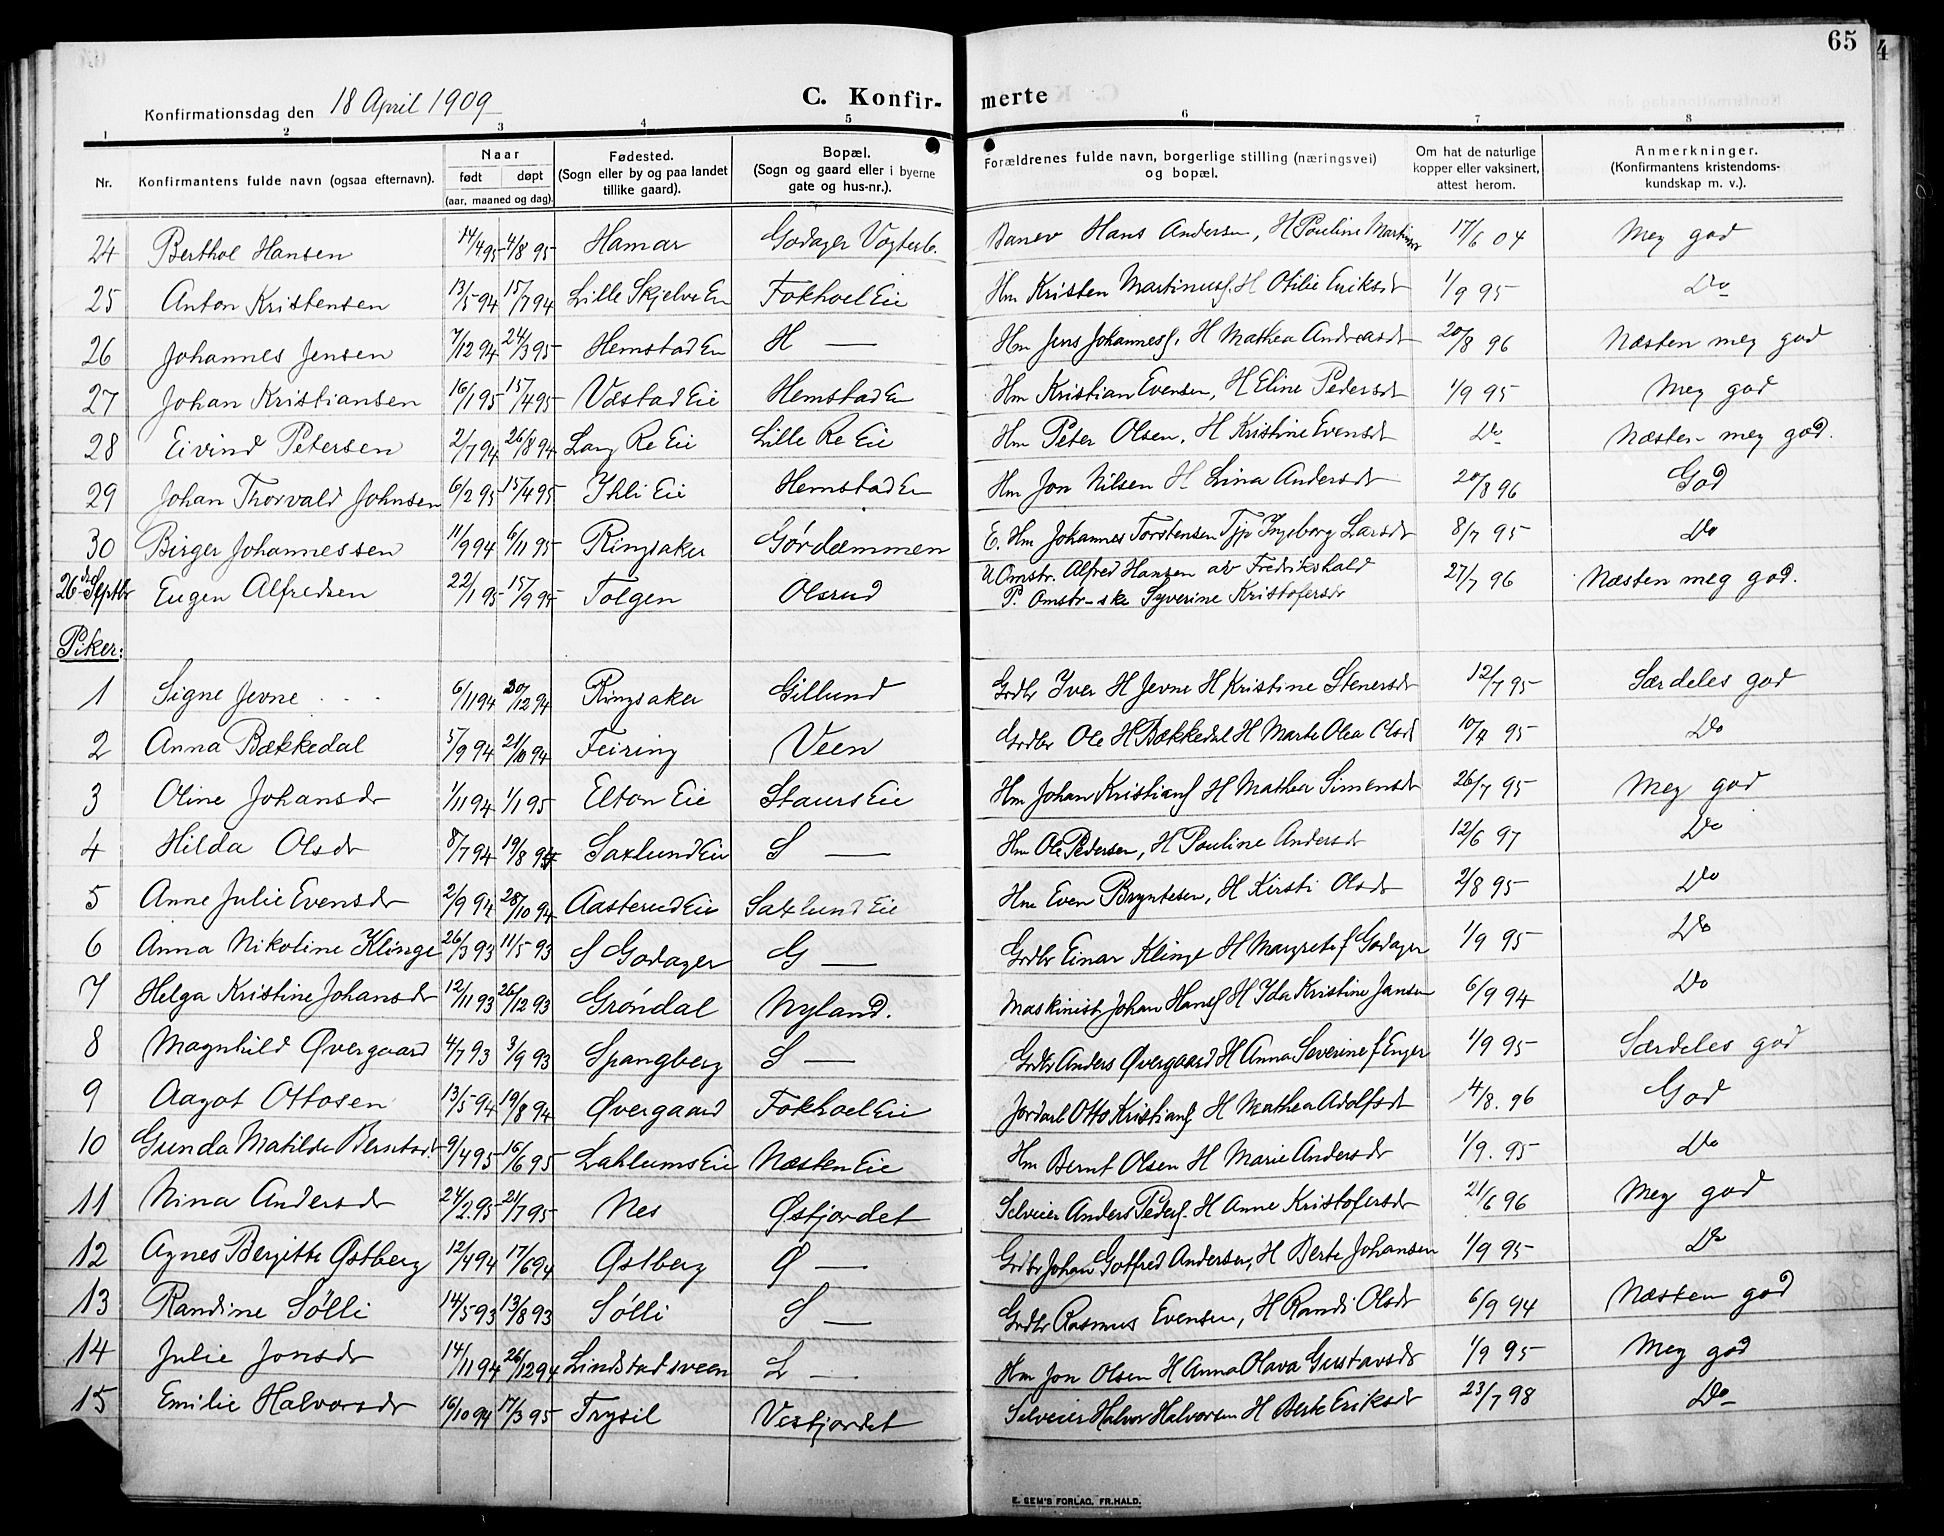 65
Konfirmationsdag den 18 April 1909 C. Konfir- merte
1 2 3 4 5 6 7 8
Nr. Konfirmantens fulde navn (ogsaa efternavn). Naar født døpt (aar, maaned og dag). Fødested. (Sogn eller by og paa landet tillike gaard). Bopæl. (Sogn og gaard eller i byerne gate og hus-nr.). Forældrenes fulde navn, borgerlige stilling (næringsvei) og bopæl. Om hat de naturlige kopper eller vaksinert, attest herom. Anmerkninger. (Konfirmantens kristendoms- kundskap m. v.).
24 Berthol Hansen 14/4 95 4/8 95 Hamar Godager Vogterb. Banev Hans Andersen, H Pauline 17/6 04 Meg god
25 Anton Kristensen 13/5 94 15/7 94 Lille Skjelve Eie Fokhoel Eie Hm Kristen Martinus. H Otilie Eriksdr 1/9 95 Do
26 Johannes Jensen 7/12 94 24/3 95 Hemstad Eie H — Hm Jens Johannes. H Mathea Andreasdr 20/8 96 Næsten meg god
27 Johan Kristiansen 16/1 95 15/4 95 Væstad Eie Hemstad Eie Hm Kristian Evensen, H Eline Pedersdr 1/9 95 Meg god
28 Eivind Petersen 2/7 94 26/8 94 Lang Re Eie Lille Re Eie Hm Peter Olsen, H Kristine Evensdr Do Næsten meg god.
29 Johan Thorvald Johnsen 6/2 95 15/4 95 Ihli Eie Hemstad Eie Hm Jon Nilsen H Lina Andersdr 20/8 96 God
30 Birger Johannessen 11/9 94 6/11 95 Ringsaker Gørdæmmen E. Hm Johannes Torstensen Tjp Ingeborg Larsdr 8/7 95 Do
26de Septbr Eugen Alfredsen 22/1 95 15/9 95 Tolgen Olsrud U Omstr. Alfred Hansen av Fredrikshald 27/7 96 Næsten meg god.
P. Omstr-ske Syverine Kristofersdr
Piker:
1 Signe Jevne 6/11 94 30/12 94 Ringsaker Gillund Grdbr Iver H Jevne H Kristine Stenersdr 12/7 95 Særdeles god
2 Anna Bækkedal 5/9 94 21/10 94 Feiring Veen Grdbr Ole H Bækkedal H Marte Olea Olsdr 10/7 95 Do
3 Oline Johansdr 1/11 94 1/1 95 Elton Eie Staurs Eie Hm Johan Kristians H Mathea Simensdr 26/7 95 Meg god
4 Hilda Olsdr 8/7 94 19/8 94 Saxlund Eie S — Hm Ole Pedersen, H Pauline Andersdr 12/6 97 Do
5 Anne Julie Evensdr 2/9 94 28/10 94 Aasterud Eie Saxlund Eie Hm Even Bryntesen, H Kirsti Olsdr 2/8 95 Do
6 Anna Nikoline Klinge 26/3 93 11/5 93 S Godager G — Grdbr Einar Klinge H Margrete f Godager 1/9 95 Do
7 Helga Kristine Johansdr 12/11 93 26/12 93 Grøndal Nyland. Maskinist Johan Hans H Ida Kristine Jansen 6/9 94 Do
8 Magnhild Øvergaard 4/7 93 3/9 93 Spangberg S — Grdbr Anders Øvergaard H Anna Severine f Enger 1/9 95 Særdeles god
9 Aagot Ottosen 13/5 94 19/8 94 Øvergaard Fokhoel Eie Jordarb Otto Kristians H Mathea Adolfsdr 4/8. 96 God
10 Gunda Matilde Berntsdr 9/4 95 16/6 95 Lahlums Eie Næsten Eie Hm Bernt Olsen H Marie Andersdr 1/9. 95 Do
11 Nina Andersdr 24/2 95 21/7 95 Nes Østfjordet Selveier Anders Peders. H Anne Kristofersdr 21/6 96 Meg god
12 Agnes Bergitte Østberg 12/4 94 17/6 94 Østberg Ø — Grdbr Johan Gotfred Andersen, H Berte Johansen 1/9 95 Do
13 Randine Sølli 14/5 93 13/8 93 Sølli S — Grdbr Rasmus Evensen, H Randi Olsdr 6/9 94 Næsten god
14 Julie Jonsdr 14/11 94 26/12 94 Lindstadsveen L — Hm Jon Olsen H Anna Olava Gustavsdr 1/9 95 Meg god
15 Emilie Halvorsdr 16/10 94 17/3 95 Trysil Vestfjordet Selveier Halvor Halvorsen H Berte Eriksdr 23/7 98 Do
E. SEM'S FORLAG, FR.HALD.